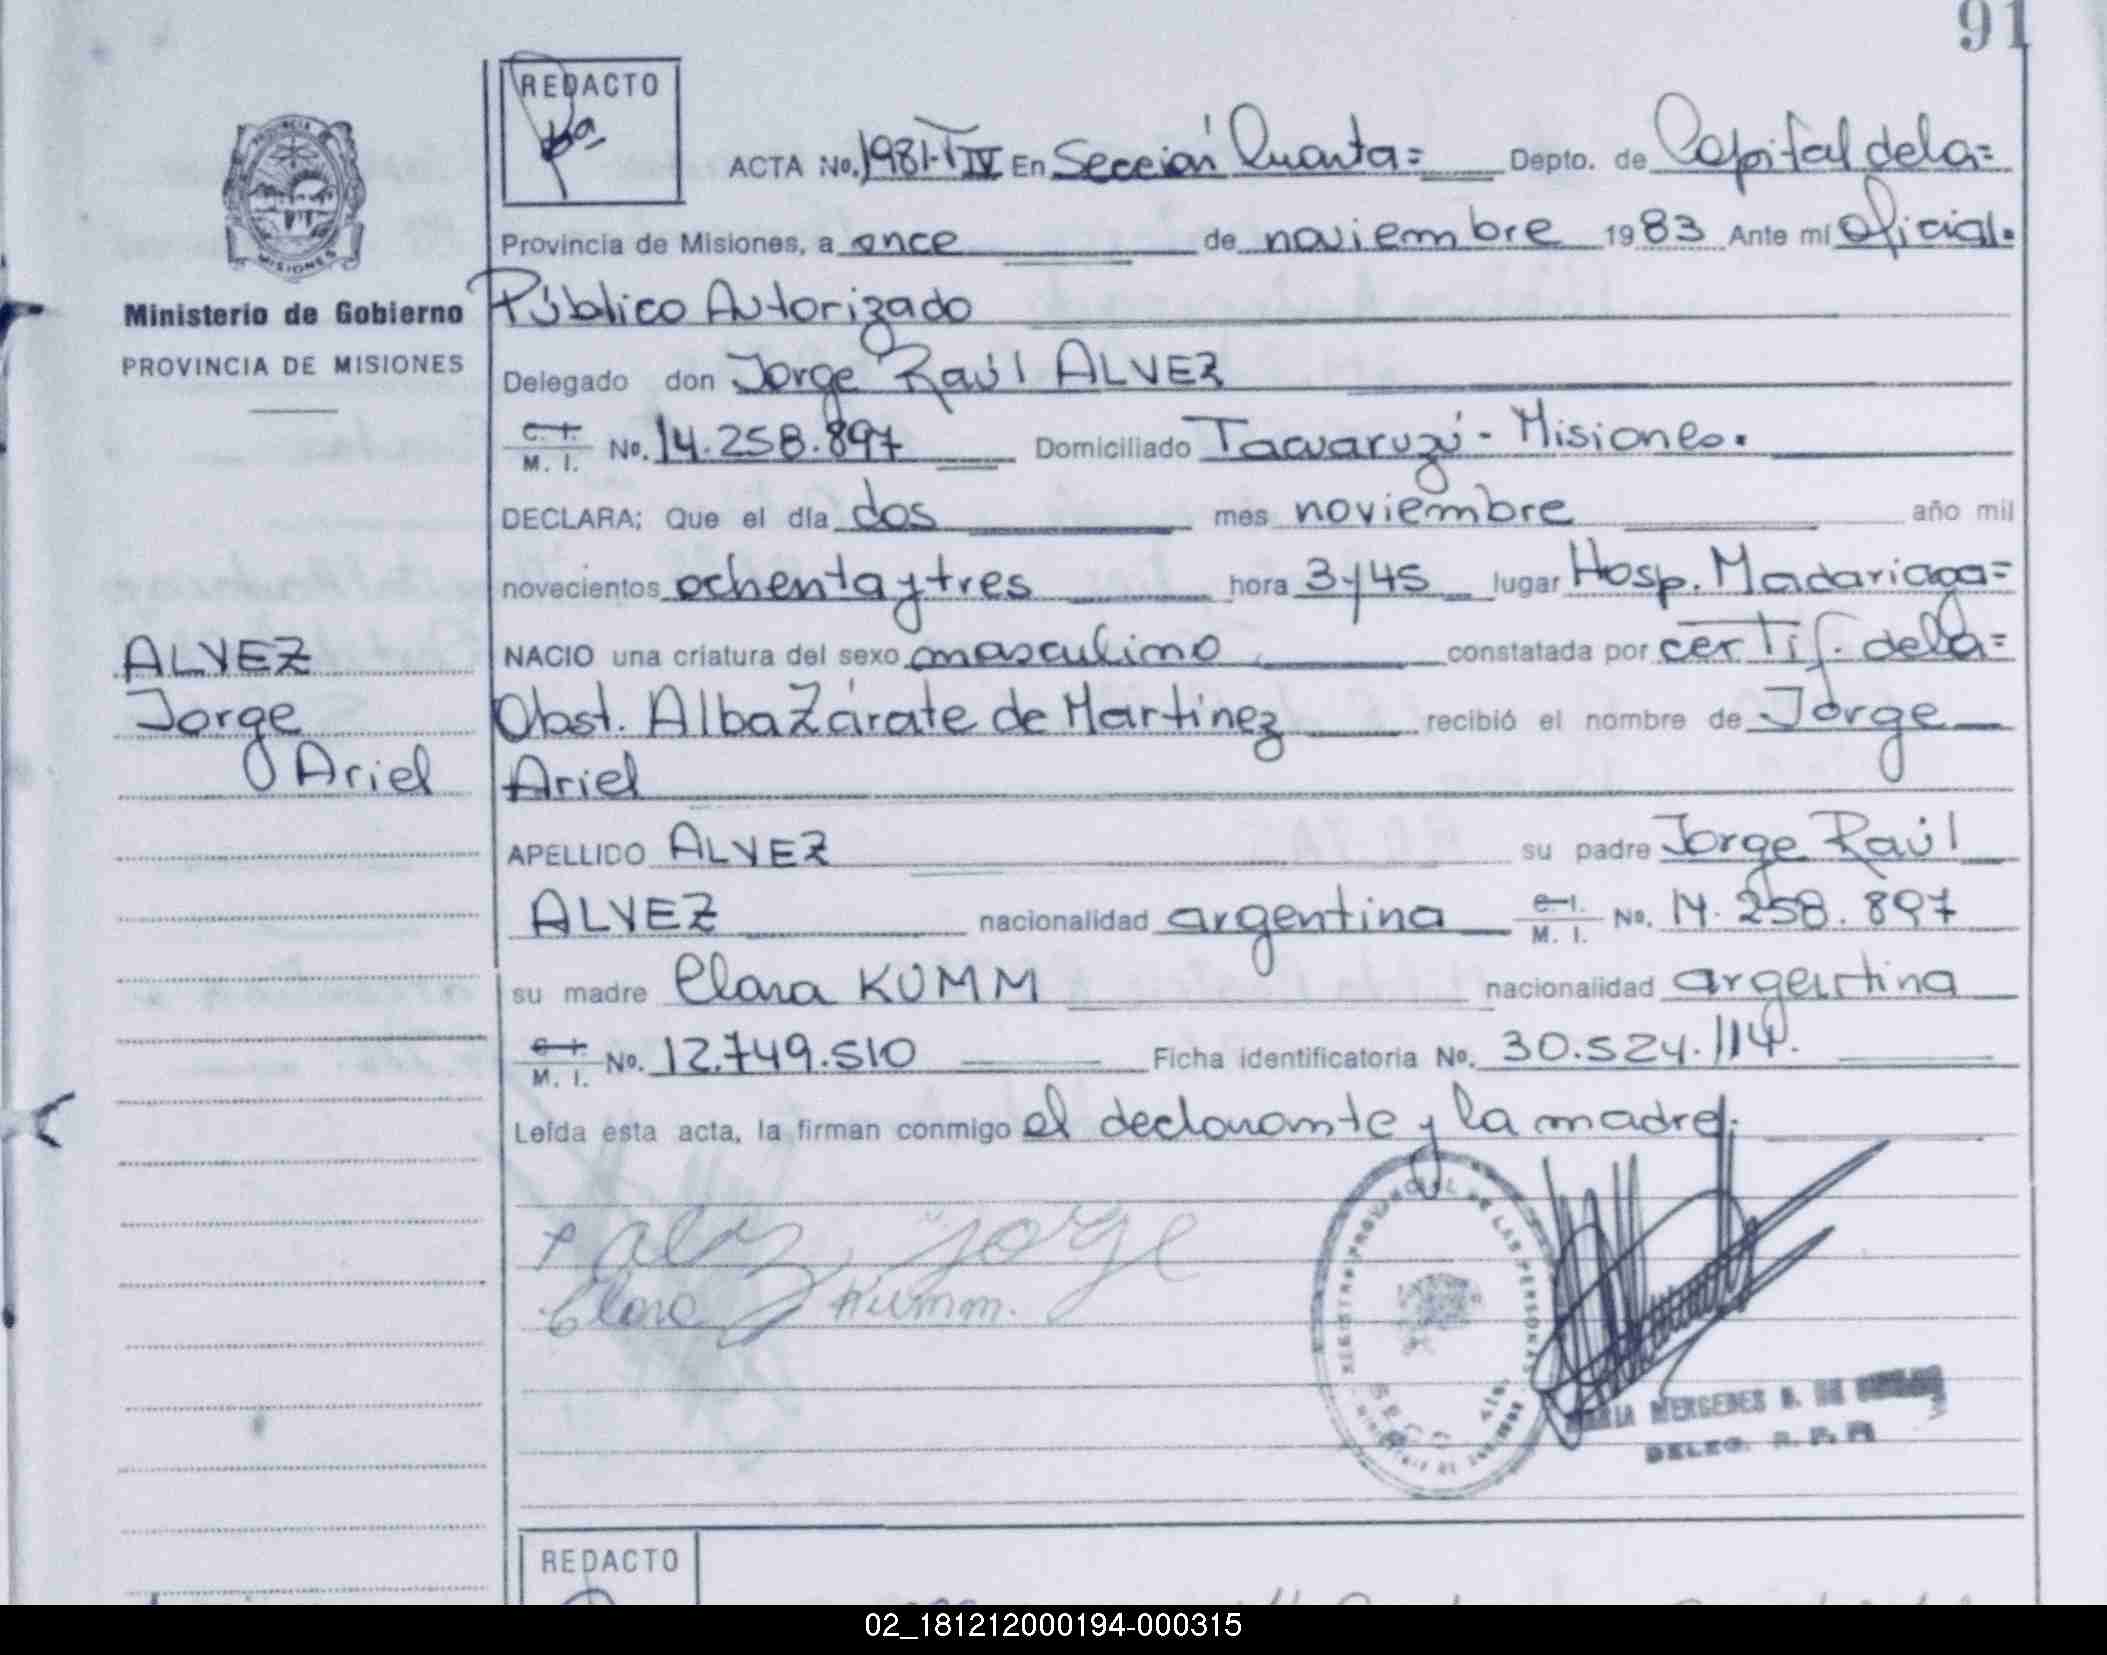 91
REDACTO
PROVINCIA DE
MISIONES
ACTA No. 1981-T IV En Sección Cuarta= Depto. de Capital de la=
Provincia de Misiones, a once de noviembre 1983 Ante mi oficial.
Ministerio de Gobierno
Público Autorizado
PROVINCIA DE MISIONES
Delegado don Jorge Raúl ALVEZ
C. I.
M. I. No. 14.258.897 Domiciliado Tacuaruzú - Misiones.
DECLARA; Que el día dos mes noviembre año mil
novecientos ochenta y tres hora 3y45 lugar Hosp. Madariaga=
ALVEZ
NACIO una criatura del sexo masculino constatada por certif. de la=
Jorge
Obst. Alba Zárate de Martínez recibió el nombre de Jorge
Ariel
Ariel
APELLIDO ALVEZ su padre Jorge Raúl
ALVEZ nacionalidad argentina C. I. M. I. No. 14.258.897
su madre Clara KUMM nacionalidad argentina
C. I.
M. I. No. 12.749.510 Ficha identificatoria No. 30.524.114.
Leída esta acta, la firman conmigo el declarante y la madre.
Jorge
Clara Kumm.
DE LAS PERSONAS
MERGENES
DELEG. R. P. P.
REDACTO
02_181212000194-000315